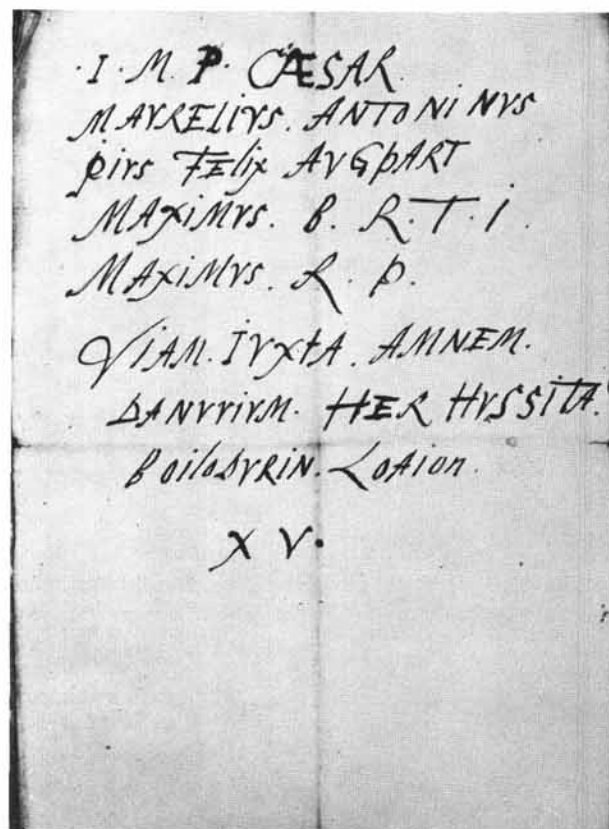 ·I·M·P· CÆSAR.
MAVRELIVS. ANTONINVS
pivs FElix AVGpART
MAXiMVS. B. R.T.I.
MAXiMVS. R. p.
ViAM. IVXtA. AMNEM.
DANVVIVM. HER HVSSITA.
BoiloDVRIN. LoAIon.
X V.